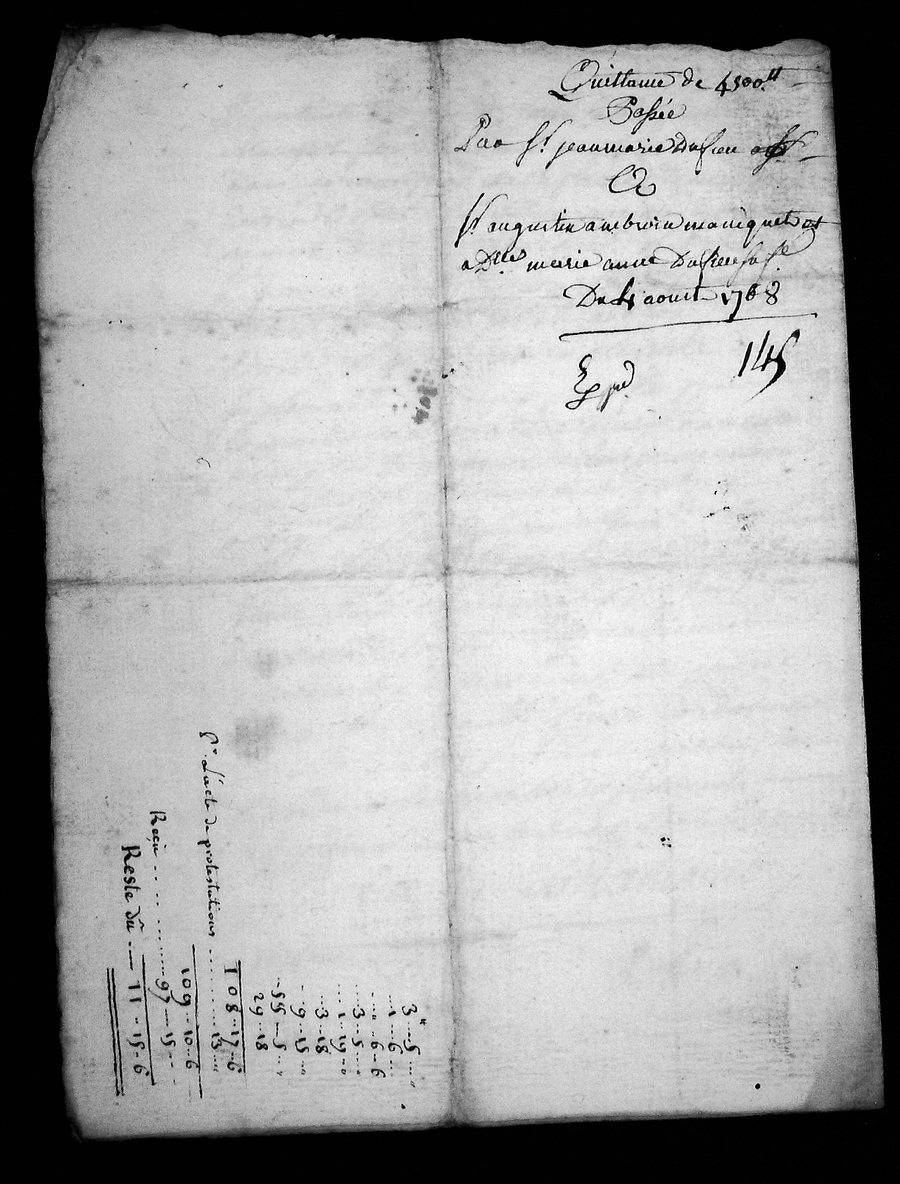 Quittance de 4500.tt
Passée
Par Sr. jean marie Dusfieu
A
Sr augustin ambroise maniquet et
a Dlle marie anne
Du 4 aoust 1768
Exp.ed
145
3tt..5..."
..1...6...
.....6-6
...3..5...
...1..19..."
...3..18
..9..15..."
..55...5..."
29..18
108..17..6
Pr. L'acte de protestations ........13..."
109..10..6
Reçu ............97...15...
Reste dû .... 11..15..6